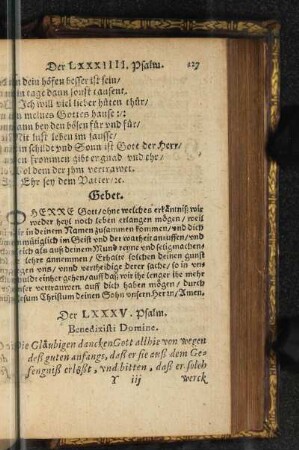 Der LXXXIIII. Psalm. 127
dein höfen besser ist sein/
ein tage dann sonst tausent.
Ich will viel lieber hüten thür/
in meines Gottes hause
dann bey den bösen für und für/
Mit lust leben im sausse/
schildt und Sonn ist Gott der Herr/
frommen gibt er gnad und ehr/
Wol dem der ihm vertrawet.
Ehr sey dem Vatter/ꝛc.
Gebet.
O HERRE Gott/ohne welches erkäntniß wir
weder heyl noch leben erlangen mögen/ weil
in deinem Namen zusammen kommen/ und dich
müttiglich im Geist und der warheit anruffen/und
als auß deinem Mund reyne und seligmachen/
lehre annemmen/ Erhalte solchen deinen gunst
gegen vns/ vnnd vertheidige deine sache/ so in vns
einher gehen/ auff daß wir ihe lenger ihe mehr
unser vertrauwen auff dich haben mögen/ durch
Jesum Christum deinen Sohn vnsern Herrn/Amen.
Der LXXXV. Psalm.
Benedixisti Domine.
Die Gläubigen dancken Gott allhie von wegen
deß guten anfangs, daß er sie auß dem Ge-
fengniß erlößt, vnd bitten, daß er solch
Y iij werck